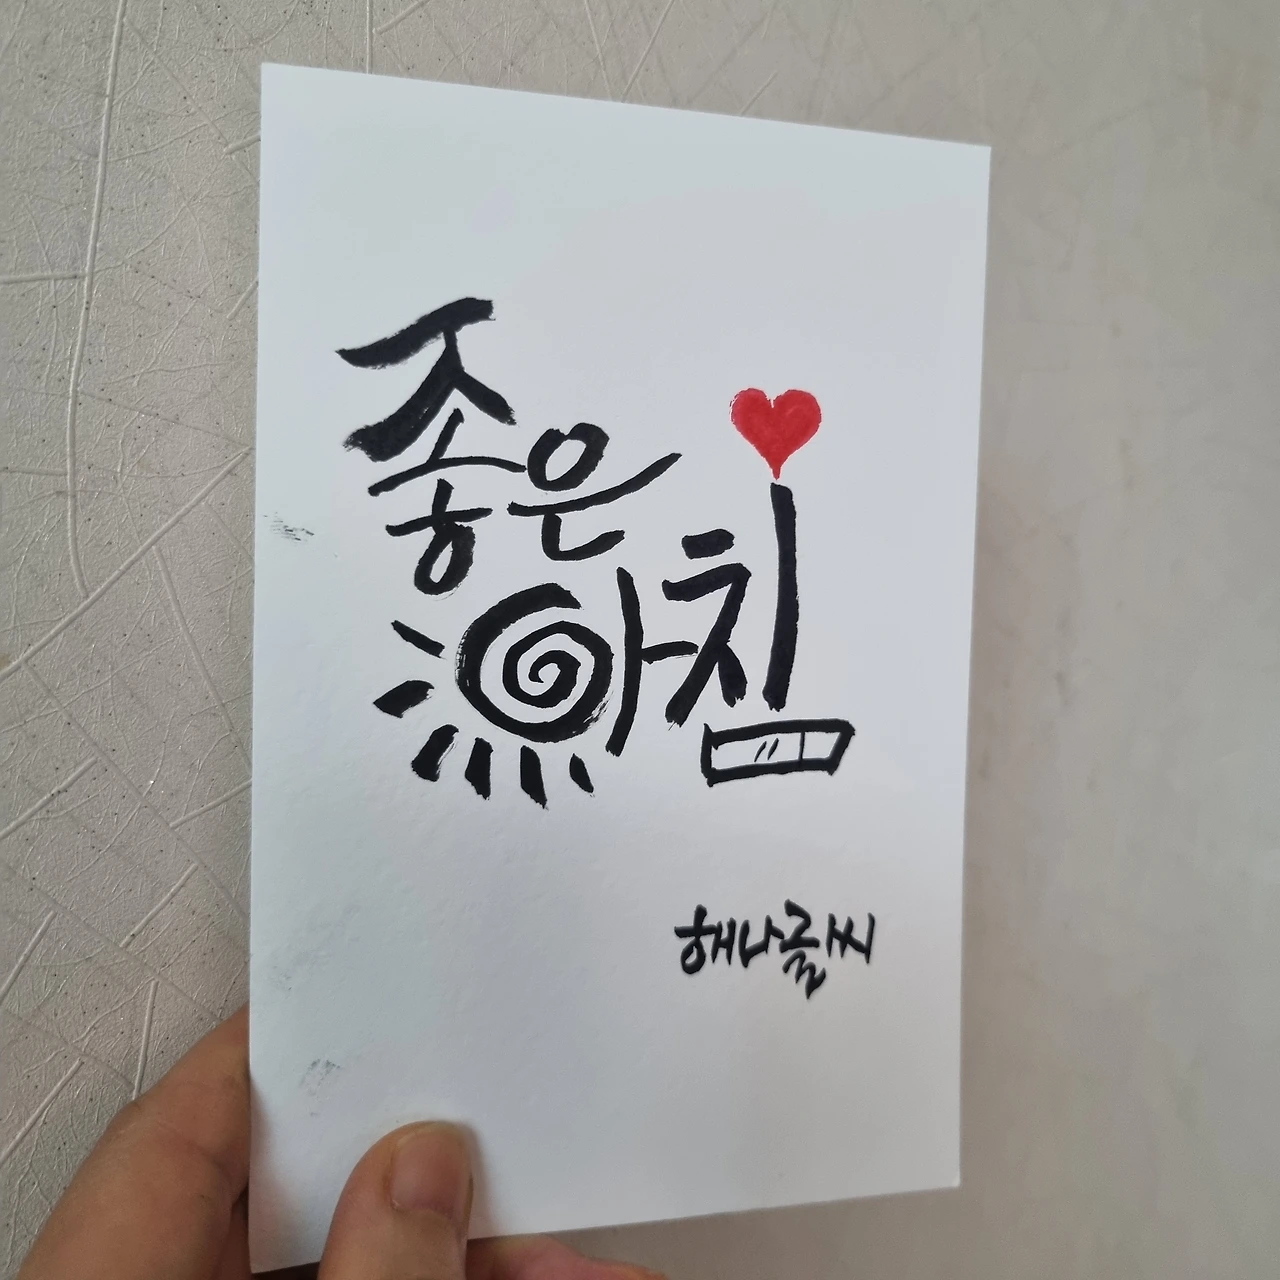 좋은
아침
해나글씨